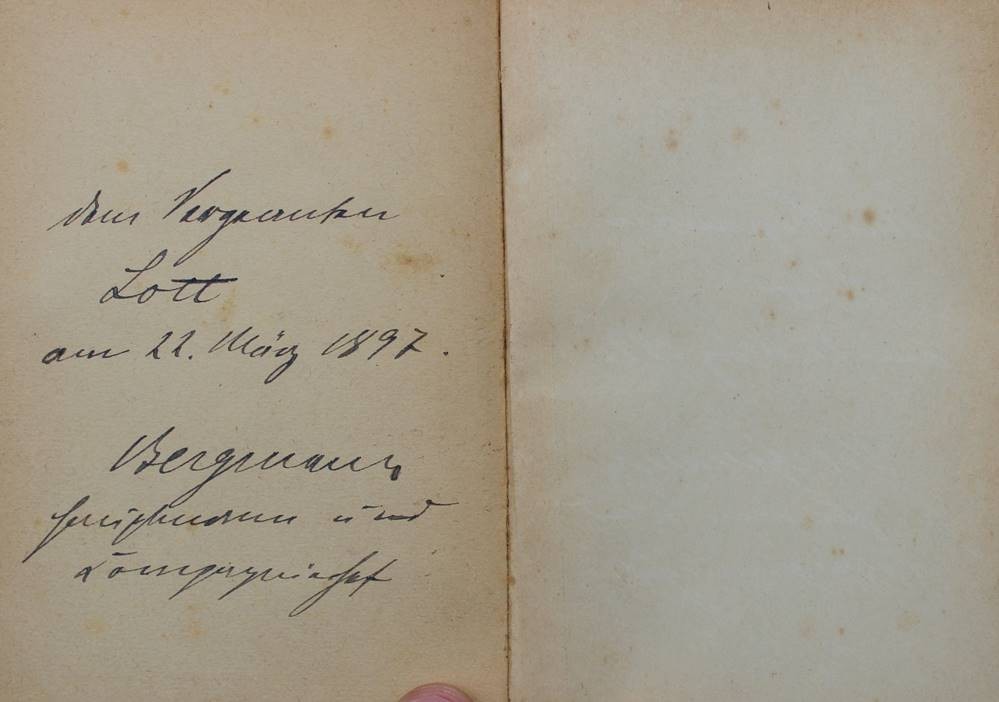 dem Sergeanten
Lott
am 22. März 1897.
Bergmann
Hauptmann und
Compagniechef